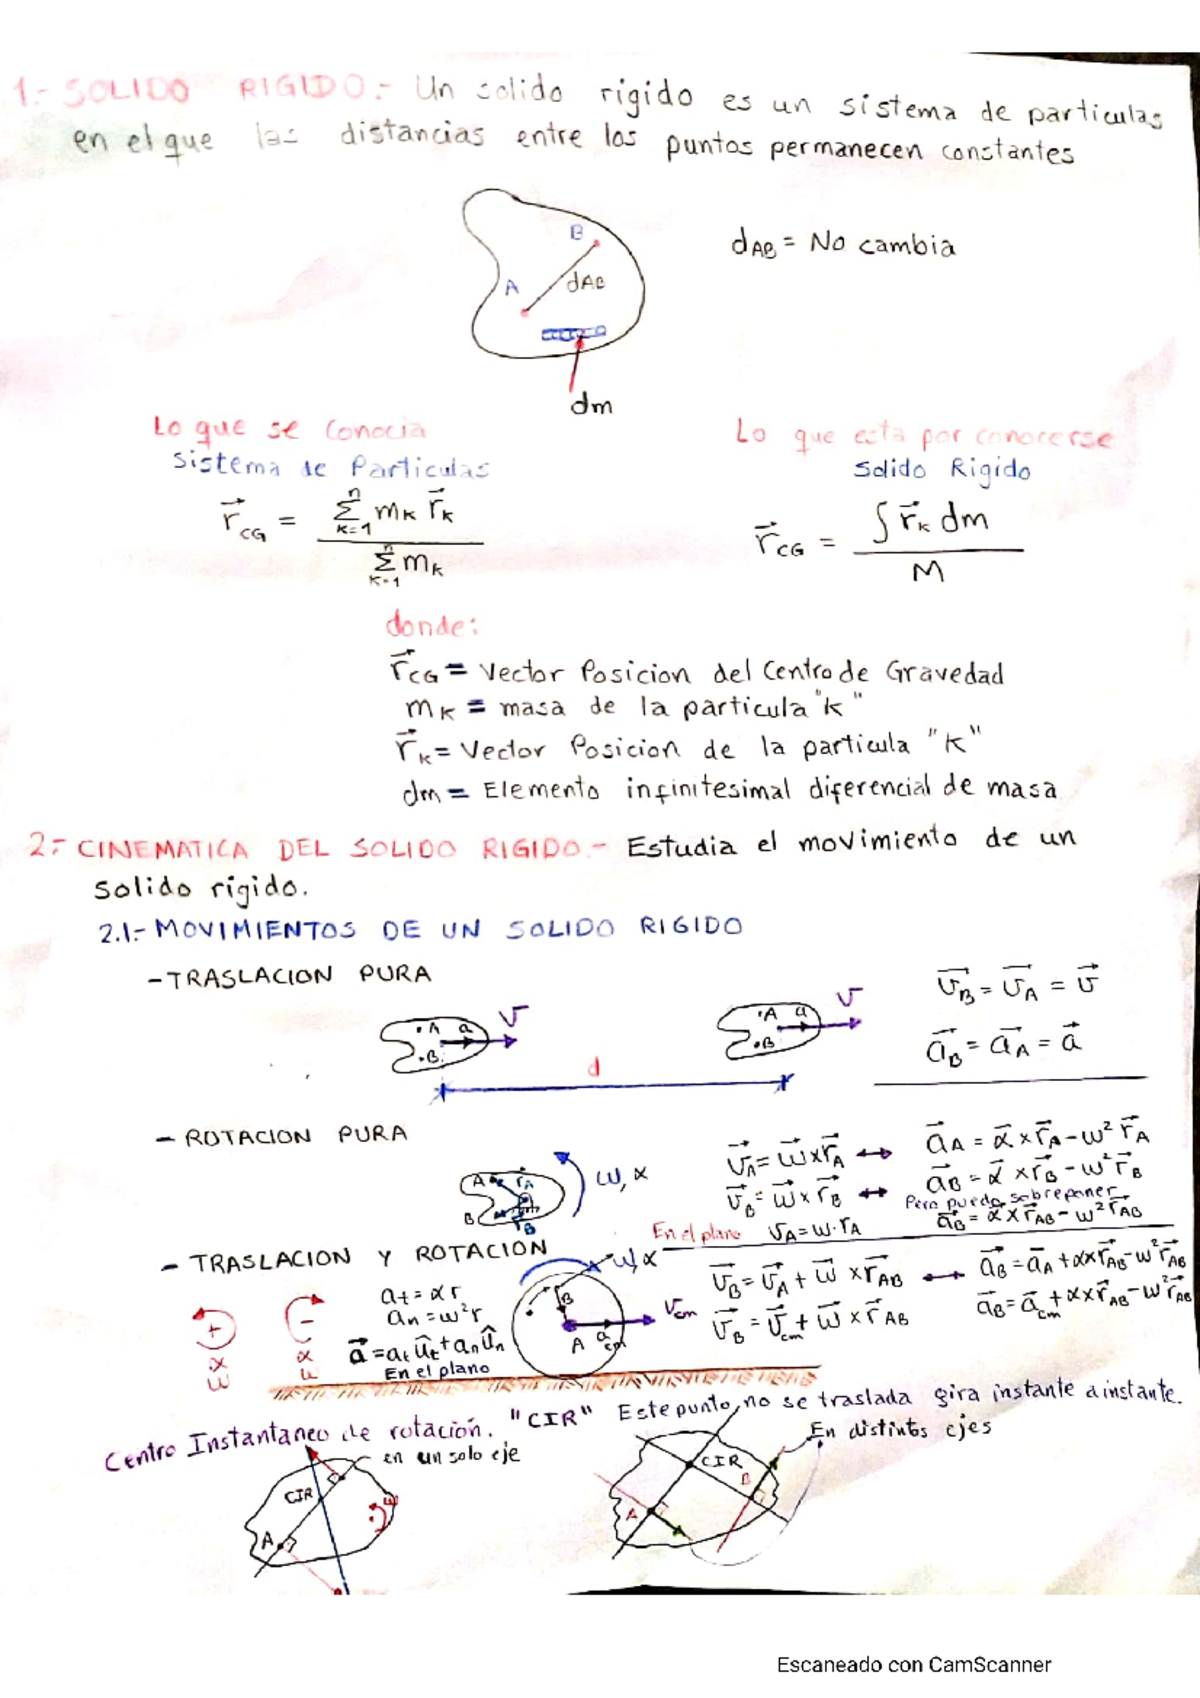 1.- SOLIDO RIGIDO.- Un solido rigido es un sistema de particulas
en el que las distancias entre los puntos permanecen constantes
B
A
dAB
dAB = No cambia
dm
Lo que se conocia
Sistema de Particulas
r⃗CG = Σ(k=1, n) mK r⃗K / Σ(k=1, n) mK
Lo que esta por conocerse
Solido Rigido
r⃗CG = ∫ r⃗K dm / M
donde:
r⃗CG = Vector Posicion del Centro de Gravedad
mK = masa de la particula "K"
r⃗K = Vector Posicion de la particula "K"
dm = Elemento infinitesimal diferencial de masa
2.- CINEMATICA DEL SOLIDO RIGIDO.- Estudia el movimiento de un
solido rigido.
2.1.- MOVIMIENTOS DE UN SOLIDO RIGIDO
-TRASLACION PURA
A a v
B
A a v
B
d
v⃗B = v⃗A = v⃗
a⃗B = a⃗A = a⃗
- ROTACION PURA
A rA
B rB
ω, α
v⃗A = ω⃗ x r⃗A ↔ a⃗A = α⃗ x r⃗A - ω² r⃗A
v⃗B = ω⃗ x r⃗B ↔ a⃗B = α⃗ x r⃗B - ω² r⃗B
Pero puedo sobreponer
a⃗B = α⃗ x r⃗AB - ω² r⃗AB
En el plano vA = ω · rA
- TRASLACION Y ROTACION
ω, α
at = α r
an = ω² r
a⃗ = at ût + an ûn
En el plano
+
α
ω
-
α
ω
B
A
acm
vcm
v⃗B = v⃗A + ω⃗ x r⃗AB ↔ a⃗B = a⃗A + α x r⃗AB - ω² r⃗AB
v⃗B = v⃗cm + ω⃗ x r⃗AB
a⃗B = a⃗cm + α x r⃗AB - ω² r⃗AB
Centro Instantaneo de rotación. "CIR" Este punto, no se traslada gira instante a instante.
en un solo eje
CIR
A
ω
En distintos ejes
CIR
B
A
Escaneado con CamScanner